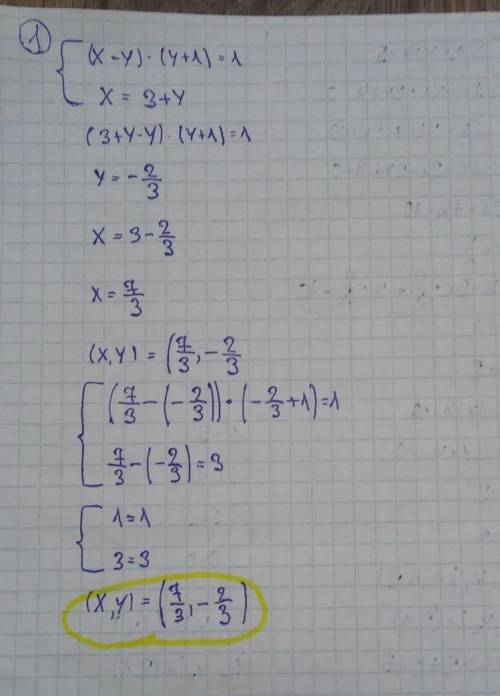 1
(X-Y)·(Y+1)=1
X = 3+Y
(3+Y-Y)·(Y+1)=1
Y = -2/3
X = 3-2/3
X = 7/3
(X,Y) = (7/3, -2/3
(7/3-(-2/3))·(-2/3+1)=1
7/3-(-2/3)=3
1=1
3=3
(X,Y) = (7/3, -2/3)